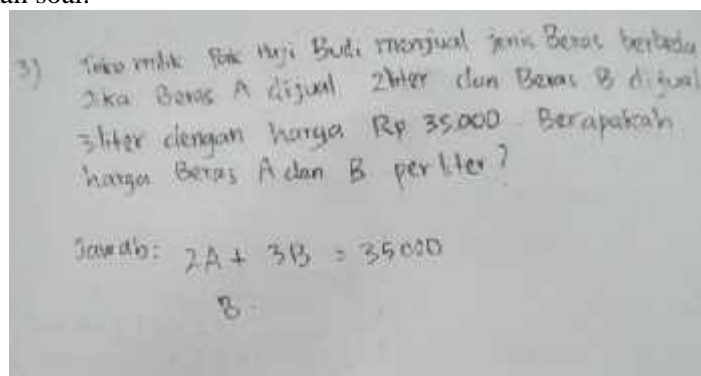 an soal.
3) Toko milik Pak Haji Budi menjual jenis Beras berbeda
Jika Beras A dijual 2 liter dan Beras B dijual
3 liter dengan harga Rp 35.000 Berapakah
harga Beras A dan B per liter?
Jawab: 2A + 3B = 35000
B.